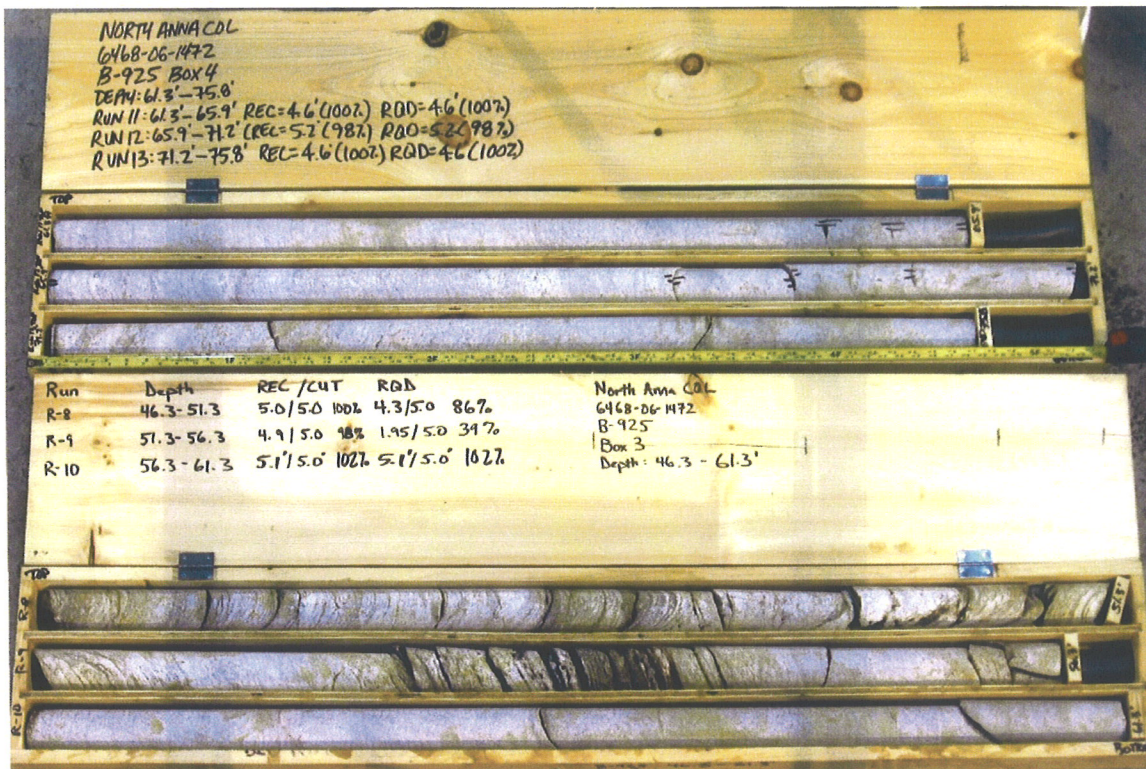 NORTH ANNA COL
6468-06-1472
B-925 BOX 4
DEPTH: 61.3'-75.8'
RUN 11: 61.3'-65.9' REC=4.6'(100%) RQD=4.6'(100%)
RUN 12: 65.9'-71.2' (REC=5.2'(98%) RQD=5.2'(98%)
RUN 13: 71.2'-75.8' REC=4.6'(100%) RQD=4.6'(100%)
TOP
65.9'
71.2'
75.8'
1F
2F
3F
4F
5F
Run Depth REC/CUT RQD
R-8 46.3-51.3 5.0/5.0 100% 4.3/5.0 86%
R-9 51.3-56.3 4.9/5.0 98% 1.95/5.0 39%
R-10 56.3-61.3 5.1'/5.0' 102% 5.1'/5.0' 102%
North Anna COL
6468-06-1472
B-925
Box 3
Depth: 46.3 - 61.3'
TOP
R-8
51.3'
R-9
56.3'
R-10
61.3'
BOTTOM